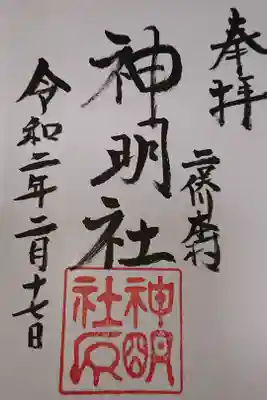 奉拝
二俣川村
神明社
神明
社印
令和二年二月十七日